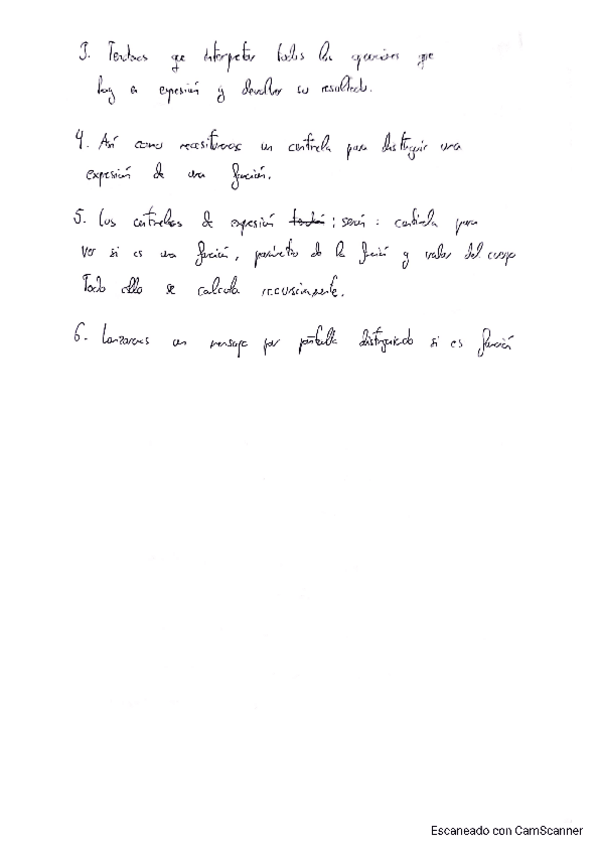 3. Tendremos que interpretar todas las operaciones que
hay en expresión y devolver su resultado.
4. Así como necesitaremos un centinela para distinguir una
expresión de una función.
5. Los centinelas de expresión serán: centinela para
ver si es una función, parámetro de la función y valor del cuerpo
Todo ello se calcula recursivamente.
6. Lanzaremos un mensaje por pantalla distinguiendo si es función
Escaneado con CamScanner